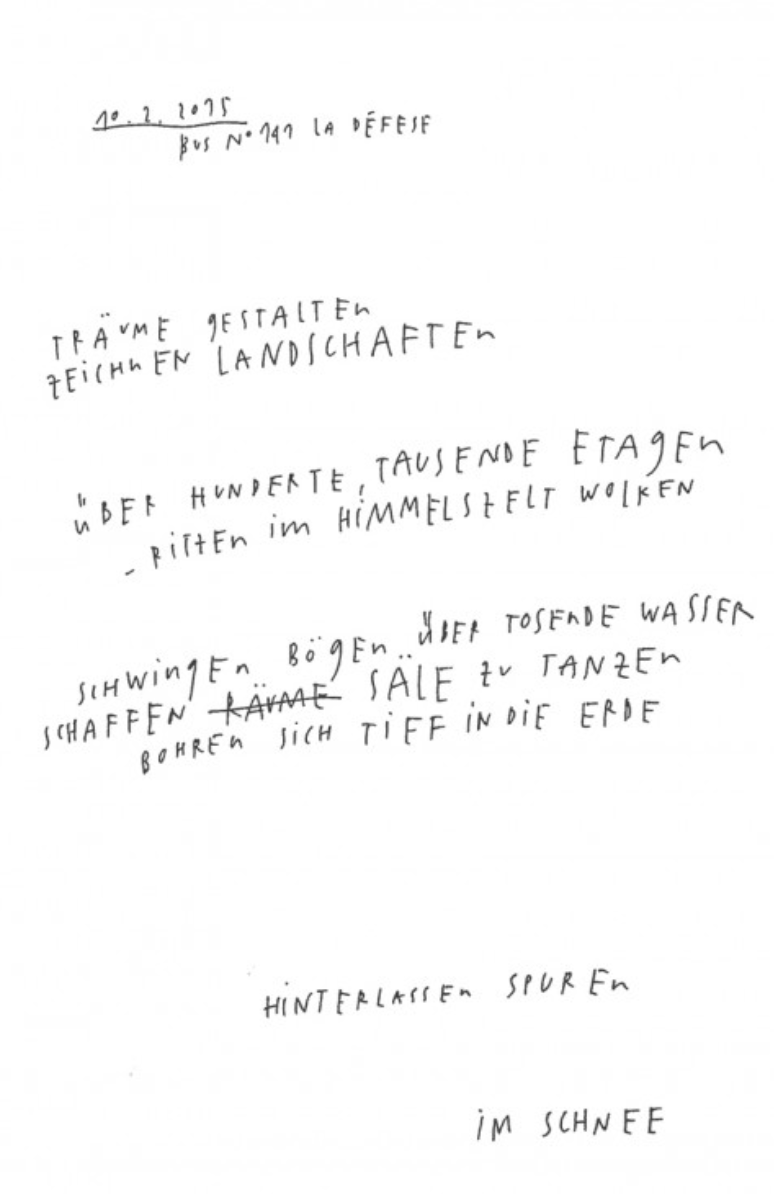 10.2.2015
BUS N° 141 LA DÉFESE
TRÄUME GESTALTEN
ZEICHNEN LANDSCHAFTEN
ÜBER HUNDERTE, TAUSENDE ETAGEN
- RITTEN IM HIMMELSZELT WOLKEN
SCHWINGEN BÖGEN ÜBER TOSENDE WASSER
SCHAFFEN RÄUME SÄLE ZU TANZEN
BOHREN SICH TIEF IN DIE ERDE
HINTERLASSEN SPUREN
IM SCHNEE